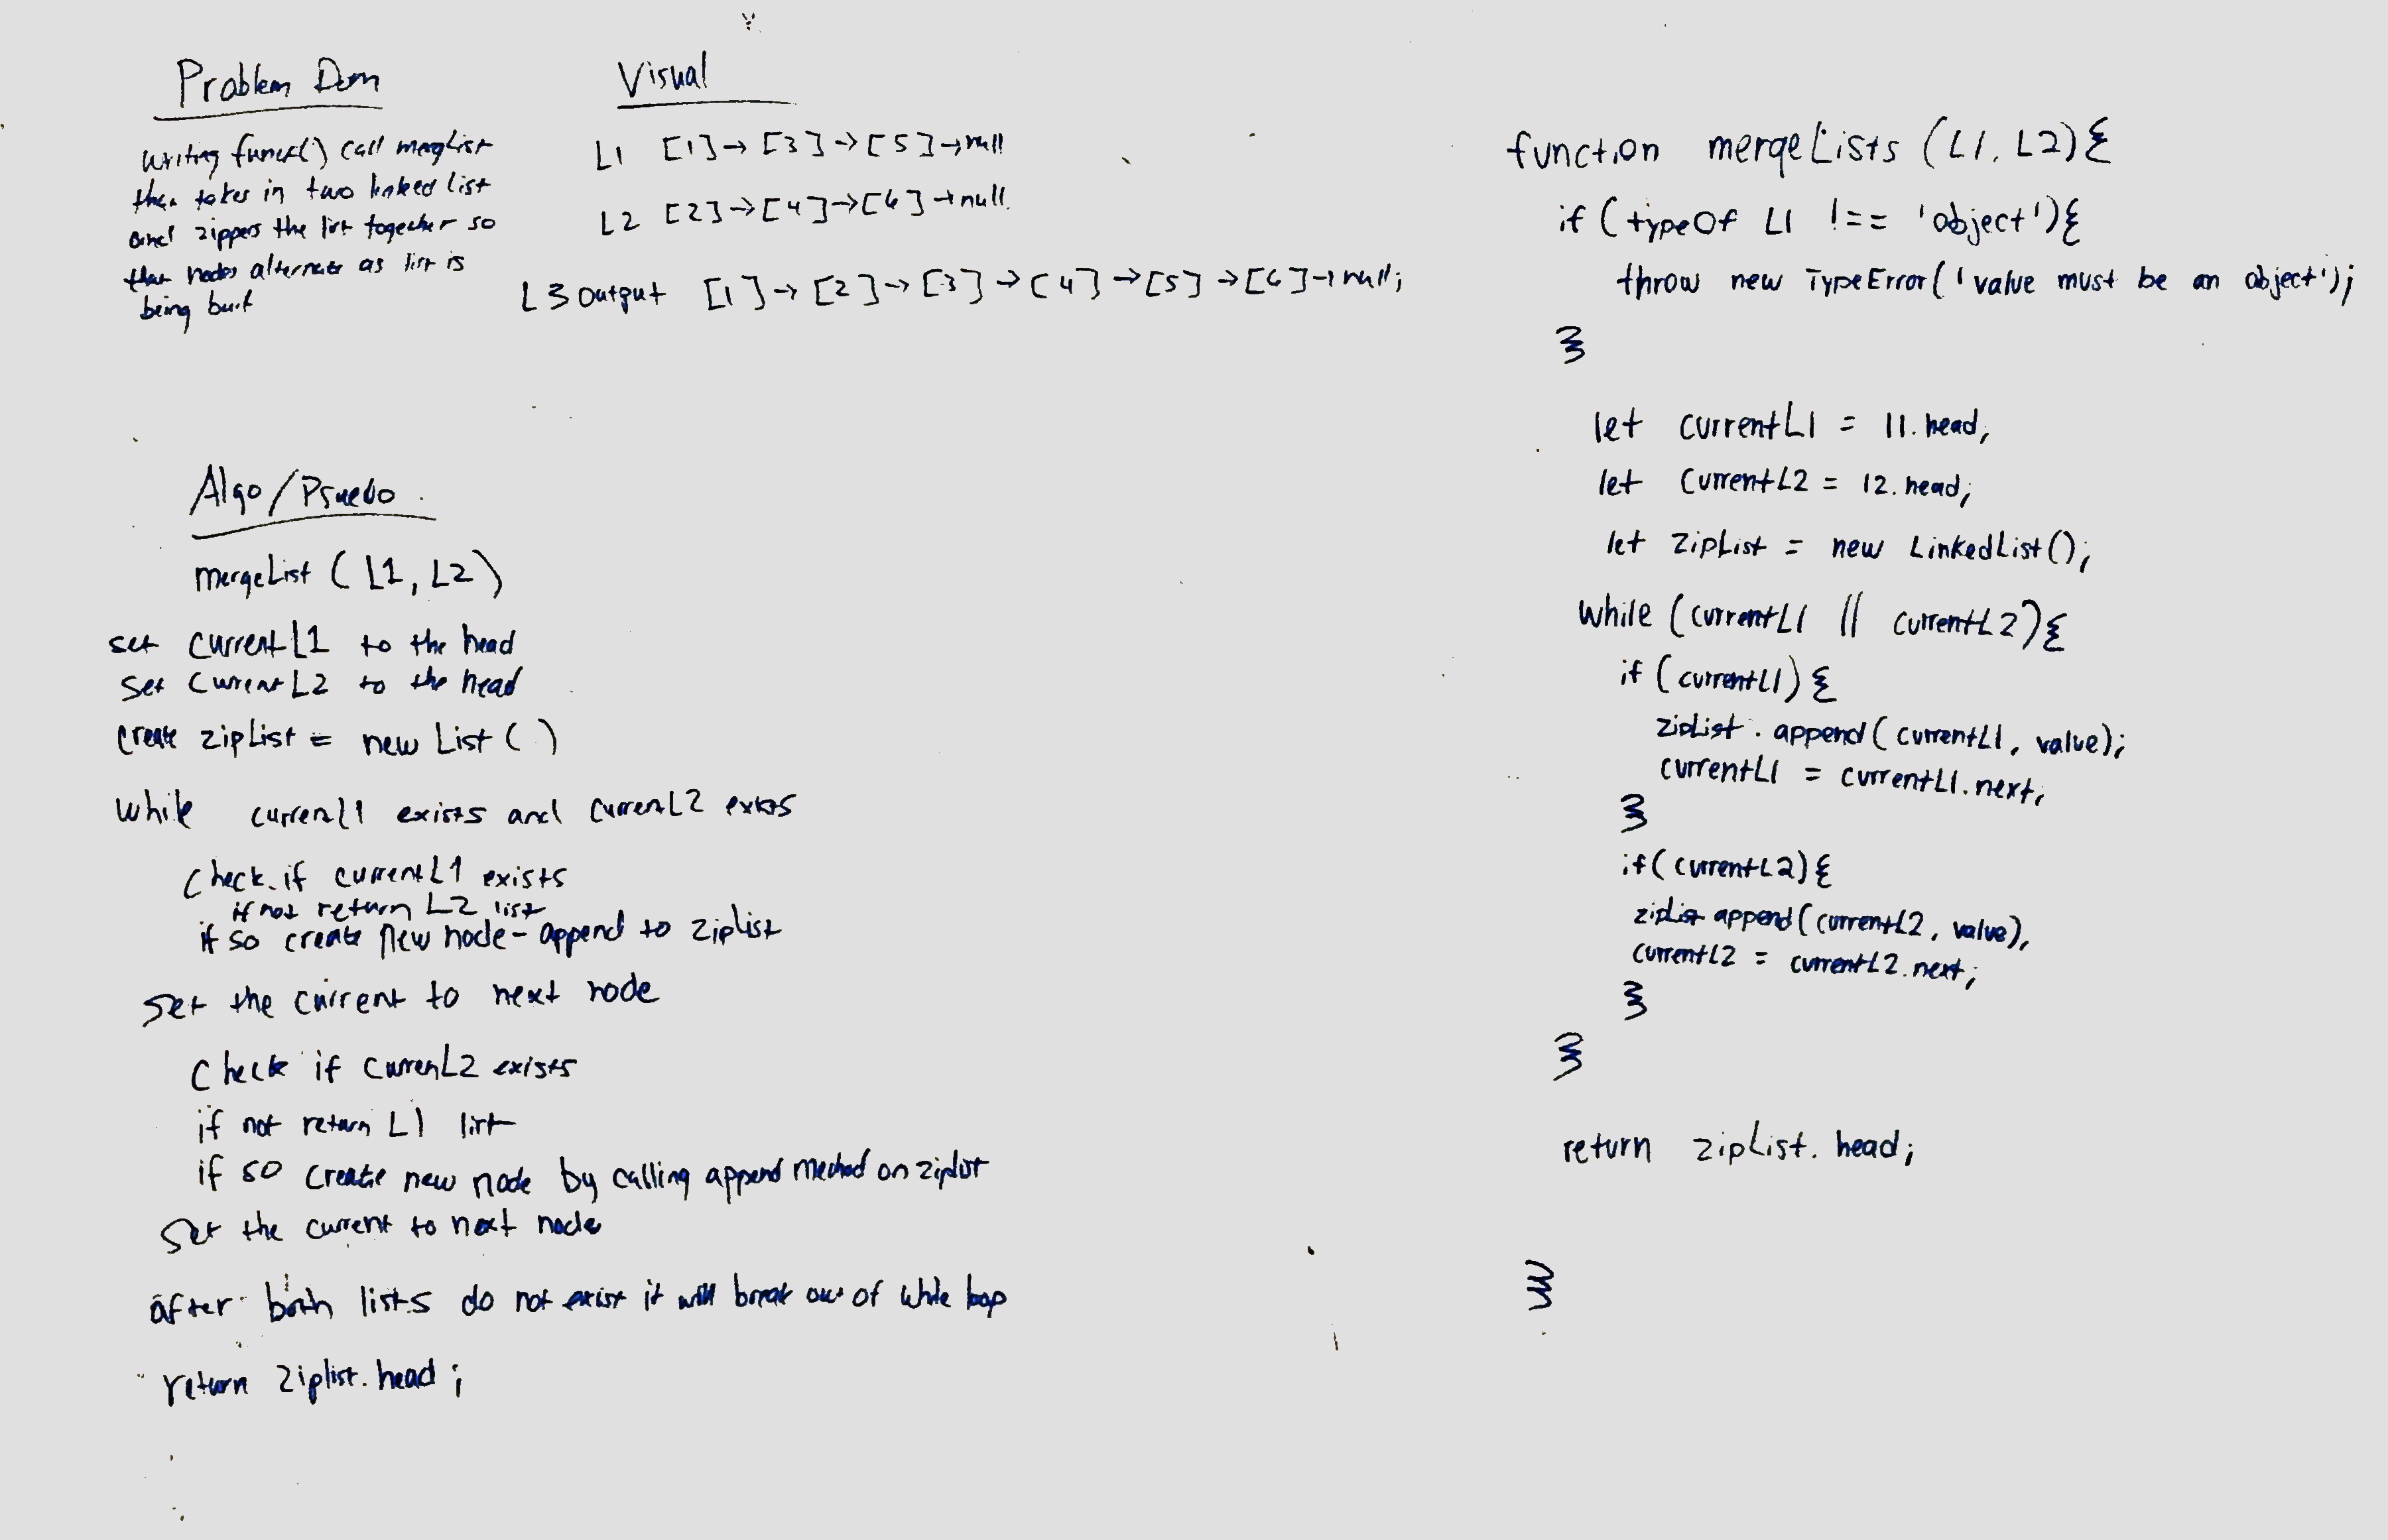 Problem Dom
Writing funct() call mergList
then takes in two linked list
and zippers the list together so
that nodes alternate as list is
being built
Visual
L1 [1]→[3]→[5]→null
L2 [2]→[4]→[6]→null.
L3 output [1]→[2]→[3]→[4]→[5]→[6]→null;
Algo/Psuedo
mergeList (L1, L2)
set currentL1 to the head
set currentL2 to the head
create zipList = new List ( )
while currenL1 exists and currenL2 exists
check if currentL1 exists
if not return L2 list
if so create new node - append to ziplist
set the current to next node
check if currenL2 exists
if not return L1 list
if so create new node by calling append method on ziplist
set the current to next node
after both lists do not exist it will break out of while loop
return ziplist.head;
function mergeLists (L1, L2){
if (typeOf L1 !== 'object'){
throw new TypeError('value must be an object');
}
let currentL1 = l1.head;
let currentL2 = l2.head;
let zipList = new LinkedList();
while (currentL1 || currentL2){
if (currentL1){
zipList.append(currentL1, value);
currentL1 = currentL1.next;
}
if(currentL2){
zipList append(currentL2, value);
currentL2 = currentL2.next;
}
}
return zipList.head;
}